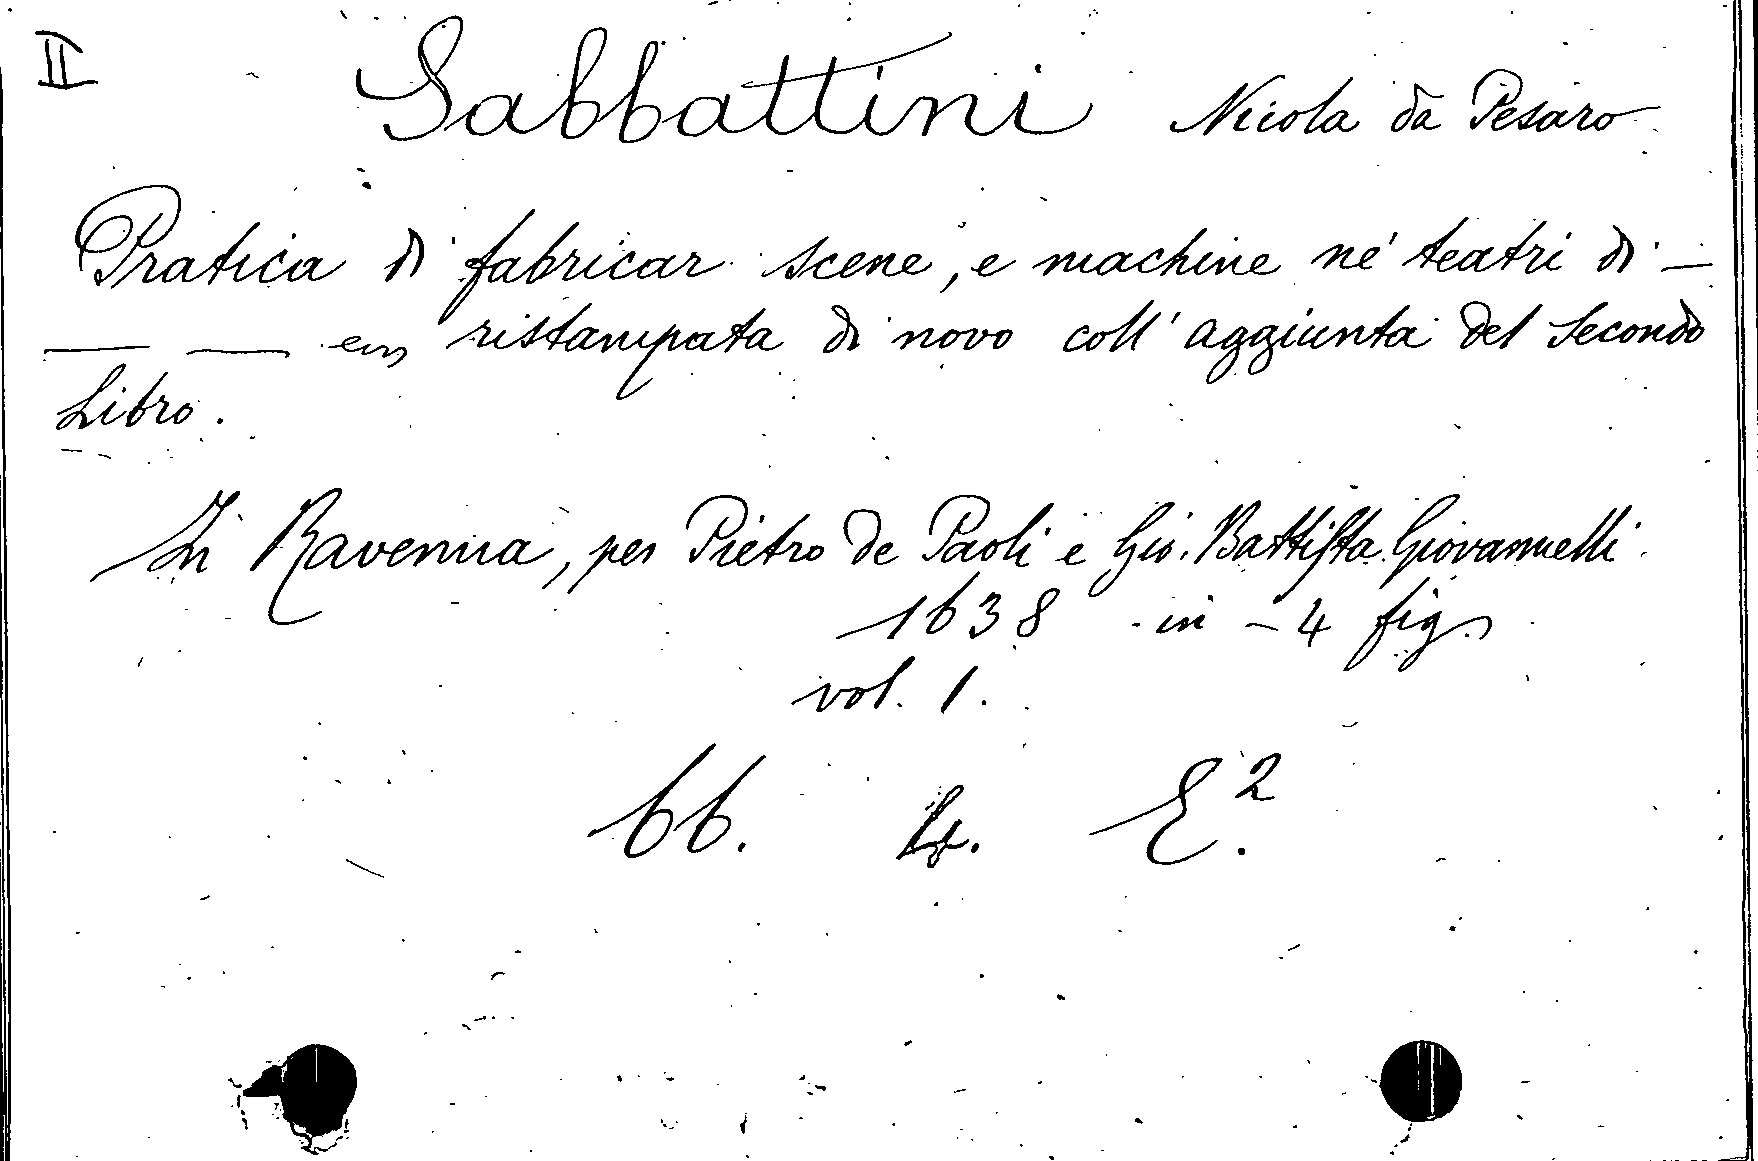 II
Sabbattini Nicola da Pesaro
Pratica di fabricar scene, e machine ne' teatri di —
— — ristampata di novo coll' aggiunta del Secondo
Libro.
In Ravenna, per Pietro de Paoli e Gio. Battista Giovannelli
1638 in - 4 fig.
vol. 1.
66. 4. E².